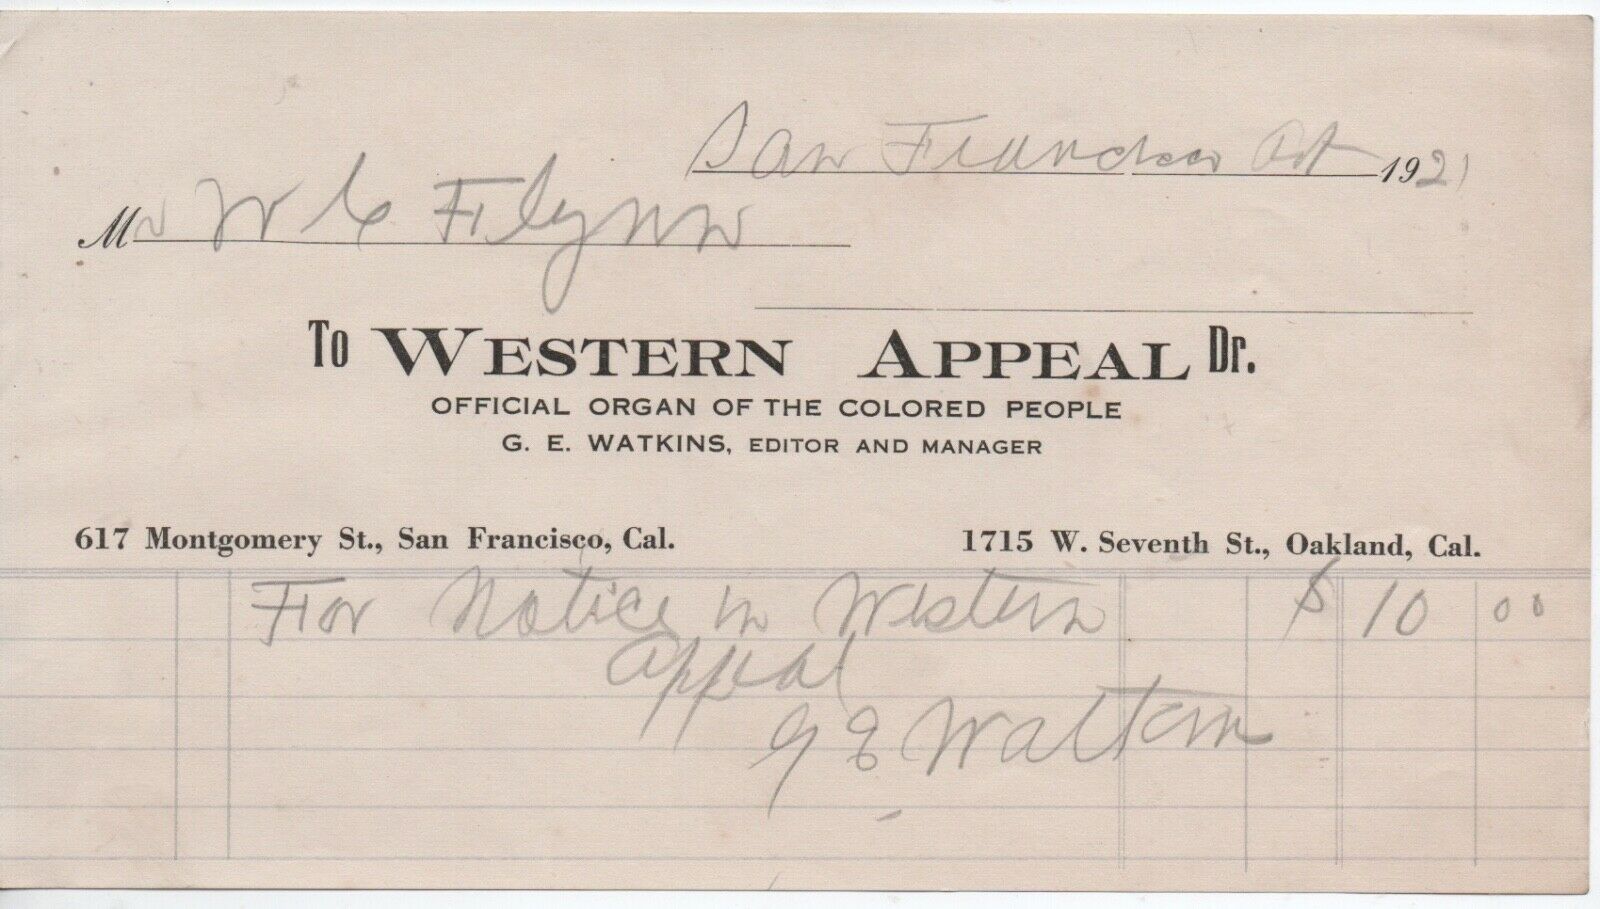 San Francisco Oct 1921
Mr W C Flynn
To WESTERN APPEAL Dr.
OFFICIAL ORGAN OF THE COLORED PEOPLE
G. E. WATKINS, EDITOR AND MANAGER
617 Montgomery St., San Francisco, Cal. 1715 W. Seventh St., Oakland, Cal.
For Notice in Western $ 10 00
Appeal
G E Watkins